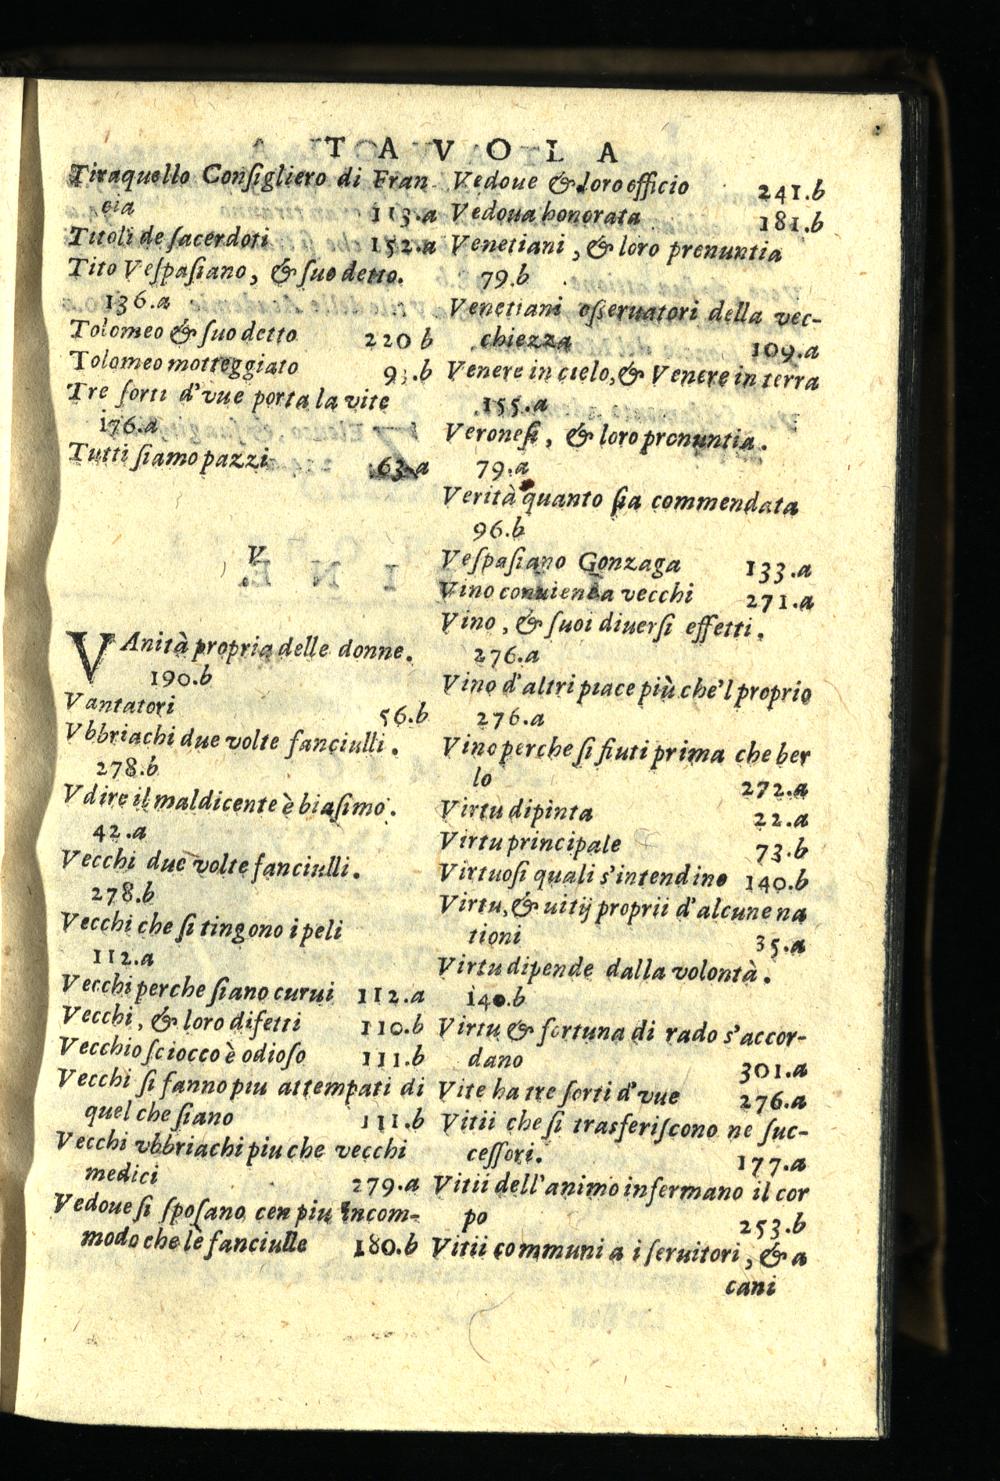 TAVOLA
Tiraquello Consigliero di Fran
cia 113.a
Titoli de sacerdoti 152.a
Tito Vespasiano, & suo detto.
136.a
Tolomeo & suo detto 220 b
Tolomeo motteggiato 93.b
Tre sorti d'vue porta la vite
176.a
Tutti siamo pazzi 63.a
V.
VAnità propria delle donne.
190.b
Vantatori 56.b
Vbbriachi due volte fanciulli.
278.b
Vdire il maldicente è biasimo.
42.a
Vecchi due volte fanciulli.
278.b
Vecchi che si tingono i peli
112.a
Vecchi perche siano curui 112.a
Vecchi, & loro difetti 110.b
Vecchio sciocco è odioso 111.b
Vecchi si fanno piu attempati di
quel che siano 111.b
Vecchi vbbriachi piu che vecchi
medici 279.a
Vedoue si sposano con piu incom-
modo che lè fanciulle 180.b
Vedoue & loro officio 241.b
Vedoua honorata 181.b
Venetiani, & loro prenuntia
79.b
Venetiani osseruatori della vec-
chiezza 109.a
Venere in cielo, & Venere in terra
155.a
Veronesi, & loro pronuntia.
79.a
Verità quanto sia commendata
96.b
Vespasiano Gonzaga 133.a
Vino conuiensi a vecchi 271.a
Vino, & suoi diuersi effetti.
276.a
Vino d'altri piace più che'l proprio
276.a
Vino perche si fiuti prima che ber
lo 272.a
Virtu dipinta 22.a
Virtu principale 73.b
Virtuosi quali s'intendino 140.b
Virtu, & uitij proprii d'alcune na
tioni 35.a
Virtu dipende dalla volontà.
140.b
Virtu & fortuna di rado s'accor-
dano 301.a
Vite ha tre sorti d'vue 276.a
Vitii che si trasferiscono ne suc-
cessori. 177.a
Vitii dell'animo infermano il cor
po 253.b
Vitii communi a i seruitori, & a
cani